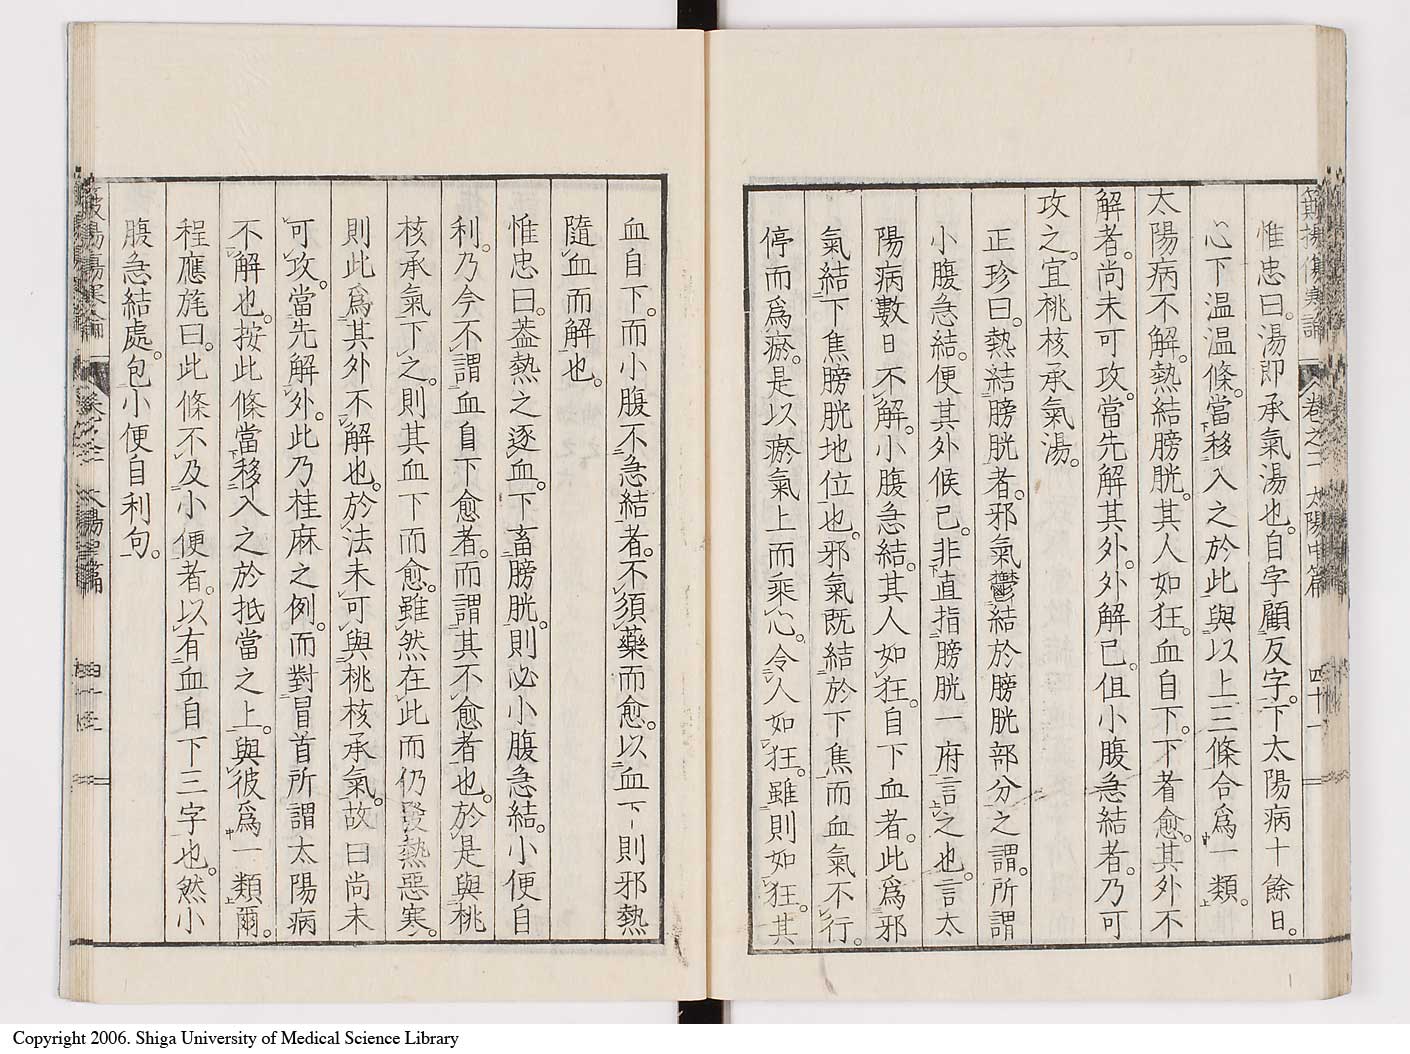 惟忠曰。湯即承氣湯也。自字顧反字。下太陽病十餘日。
心下温温條。當移入之於此與以上三條合爲一類。
太陽病不解。熱結膀胱。其人如狂。血自下。下者愈。其外不
解者。尚未可攻。當先解其外。外解已。但小腹急結者。乃可
攻之。宜桃核承氣湯。
正珍曰。熱結膀胱者。邪氣鬱結於膀胱部分之謂。所謂
小腹急結。便其外候已。非直指膀胱一府言之也。言太
陽病數日不解。小腹急結。其人如狂。自下血者。此爲邪
氣結下焦膀胱地位也。邪氣既結於下焦而血氣不行。
停而爲瘀。是以瘀氣上而乘心。令人如狂。雖則如狂。其
卷之二 太陽中篇 四十一
血自下。而小腹不急結者。不須藥而愈。以血下則邪熱
隨血而解也。
惟忠曰。葢熱之逐血。下畜膀胱。則必小腹急結。小便自
利。乃今不謂血自下愈者。而謂其不愈者也。於是與桃
核承氣下之。則其血下而愈。雖然在此而仍發熱惡寒。
則此爲其外不解也。於法未可與桃核承氣。故曰尚未
可攻。當先解外。此乃桂麻之例。而對冒首所謂太陽病
不解也。按此條當移入之於抵當之上。與彼爲一類爾。
程應旄曰。此條不及小便者。以有血自下三字也。然小
腹急結處。包小便自利句。
Copyright 2006. Shiga University of Medical Science Library